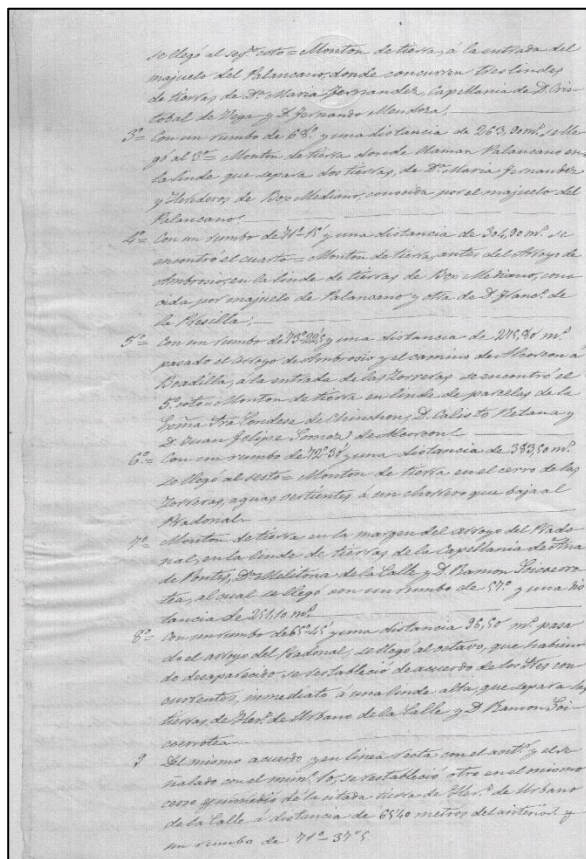 se llegó al seg.º coto = Monton de tierra, á la entrada del
majuelo del Palancano, donde concurren tres lindes
de tierras de D.ª Maria Fernandez, Capellania de D. Cris-
tobal de Vega y D. Fernando Mendoza.
3.º = Con un rumbo de 68.º y una distancia de 263,00 m.s se lle-
gó al 3.º = Monton de tierra donde llaman Palancano en
la linde que separa dos tierras, de D.ª Maria Fernandez
y Herederos de Box Mediano, conocida por el majuelo del
Palancano.
4.º = Con un rumbo de 71º 15' y una distancia de 304,90 m.s se
encontró el cuarto = Monton de tierra, antes del Arroyo de
Ambrosio, en la linde de tierras de Box Mediano, cono-
cida por majuelo de Palancano y otra de D. Fran.co de
la Presilla;
5.º = Con un rumbo de y una distancia de m.s
pasado el arroyo de Ambrosio y el camino de Alcorcon á
Boadilla, á la entrada de las Zorreras se encontró el
5.º coto = Monton de tierra en linde de parcelas de la
Condesa de Chinchon, D. Calisto Retana y
D. Juan Felipe Gomez, de Alcorcon.
6.º = Con un rumbo de 72º 30' y una distancia de 383,50 m.s
se llegó al sesto = Monton de tierra en el cerro de las
Zorreras, aguas vertientes á un chorrero que baja al
Pradonal.
7.º Monton de tierra en la margen del arroyo del Prado-
nal, en la linde de tierras de la Capellania de Ana
de Pontes, D.ª Melitona de la Calle y D. Ramon Goicoerro-
tea, al cual se llegó con un rumbo de 57.º y una dis-
tancia de 251,10 m.s
8.º = Con un rumbo de 65º 45' y una distancia 96,50 m.s pasa-
do el arroyo del Pradonal, se llegó al octavo, que habien-
do desaparecido se restableció de acuerdo de los Sres con-
currentes, inmediato á una linde alta, que separa las
tierras de Her.s de Urbano de la Calle y D. Ramon Goi-
coerrotea
9 Del mismo acuerdo y en linea recta con el ant.r y el se-
ñalado con el núm.º 10, se restableció otro en el mismo
cerro y inmedio de la citada tierra de Her.s de Urbano
de la Calle á distancia de 65,40 metros del anterior y
un rumbo de 71º = 37'5